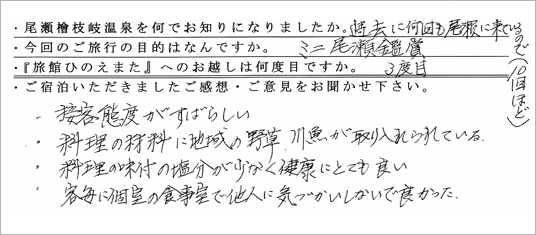 ・尾瀬檜枝岐温泉を何でお知りになりましたか。過去に何回も尾瀬に来ているので(10回ほど)
・今回のご旅行の目的はなんですか。 ミニ尾瀬鑑賞
・『旅館ひのえまた』へのお越しは何度目ですか。 3度目
・ご宿泊いただきましたご感想・ご意見をお聞かせ下さい。
・接客態度がすばらしい
・料理の材料に地域の野草、川魚が取り入れられている.
・料理の味付の塩分が少なく健康にとても良い
・客毎に個室の食事室で他人に気づかいしないで良かった.